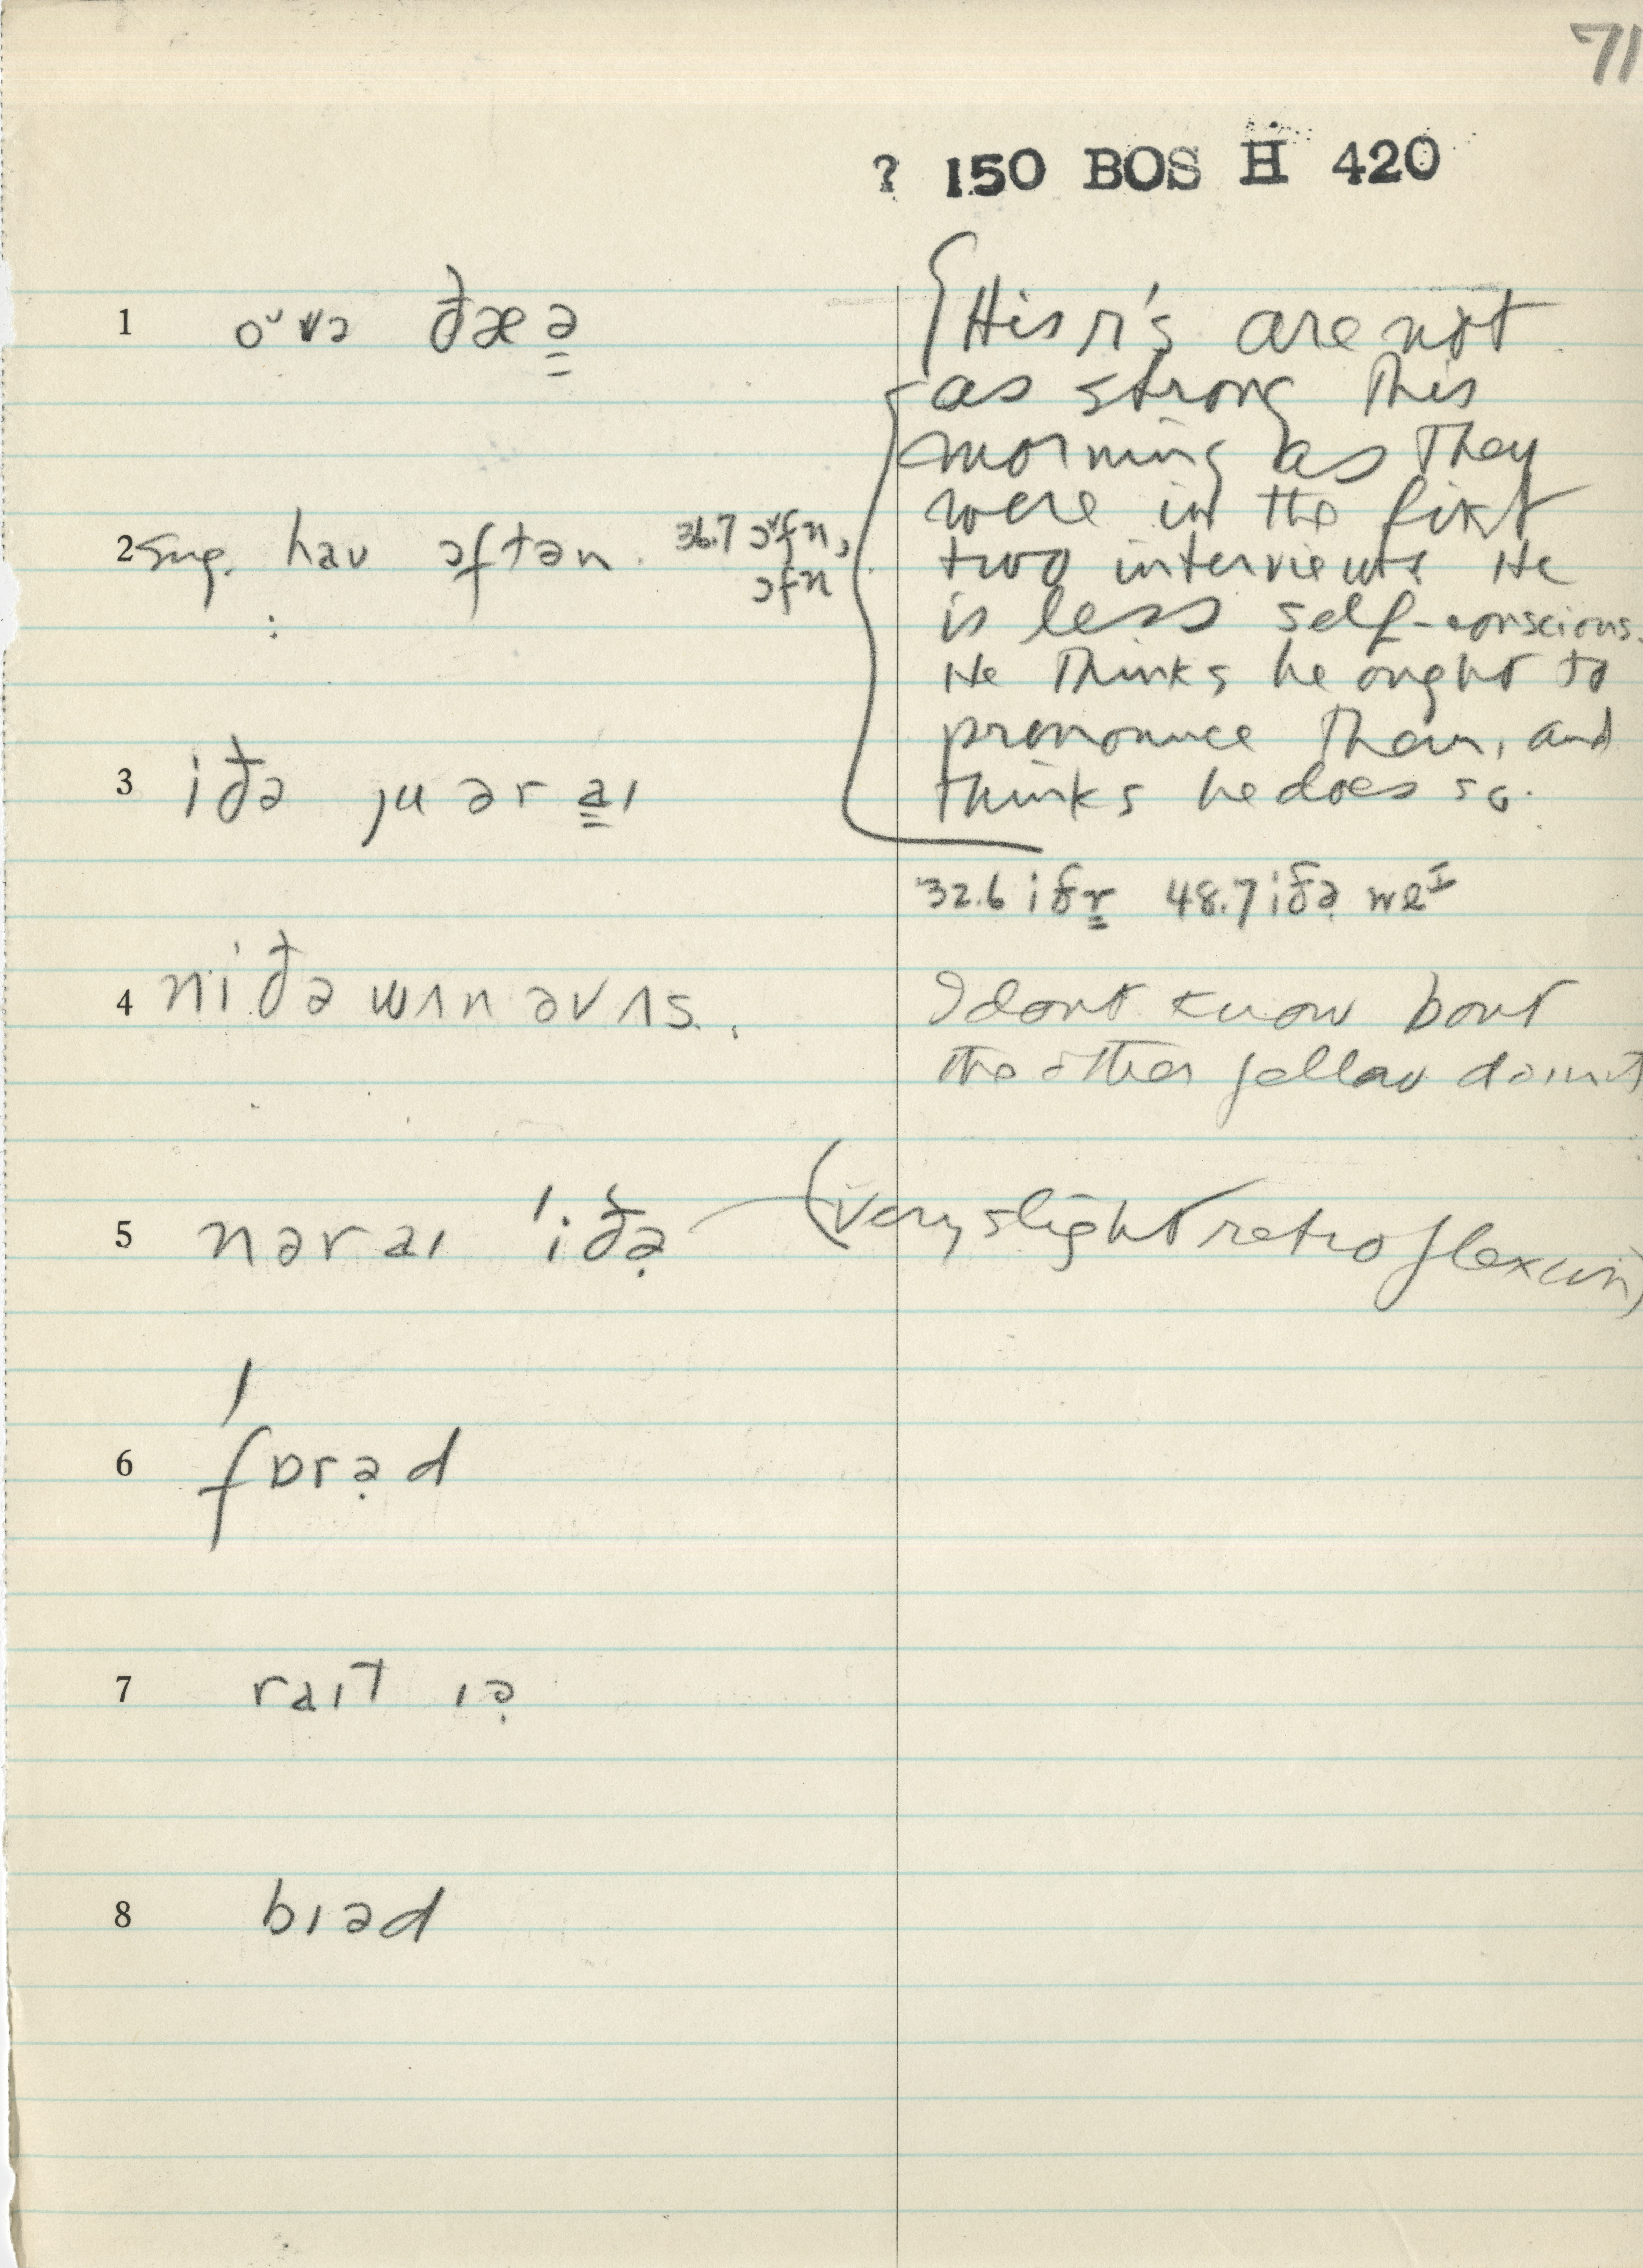 71
? 150 BOS H 420
1 oᵛvə ðæə̳
{His r's are not
as strong this
morning as they
were in the first
two interviews He
is less self-conscious.
He thinks he ought to
pronounce them, and
thinks he does so.
2 sug. haʊ ɔftən. 36.7 ɔᵛfn̩,
ɔfn̩
3 iðə ju ər a̳ɪ
32.6 iðr̳ 48.7 iðə̣ weᴵ
4 niðə wʌn əv ʌs.
I dont know bout
the other fellow
5 nər aɪ 'iðə̣ (very slight retroflexion)
6 'fɒrə̣d
7 raɪt ɪə̣
8 bɪəd